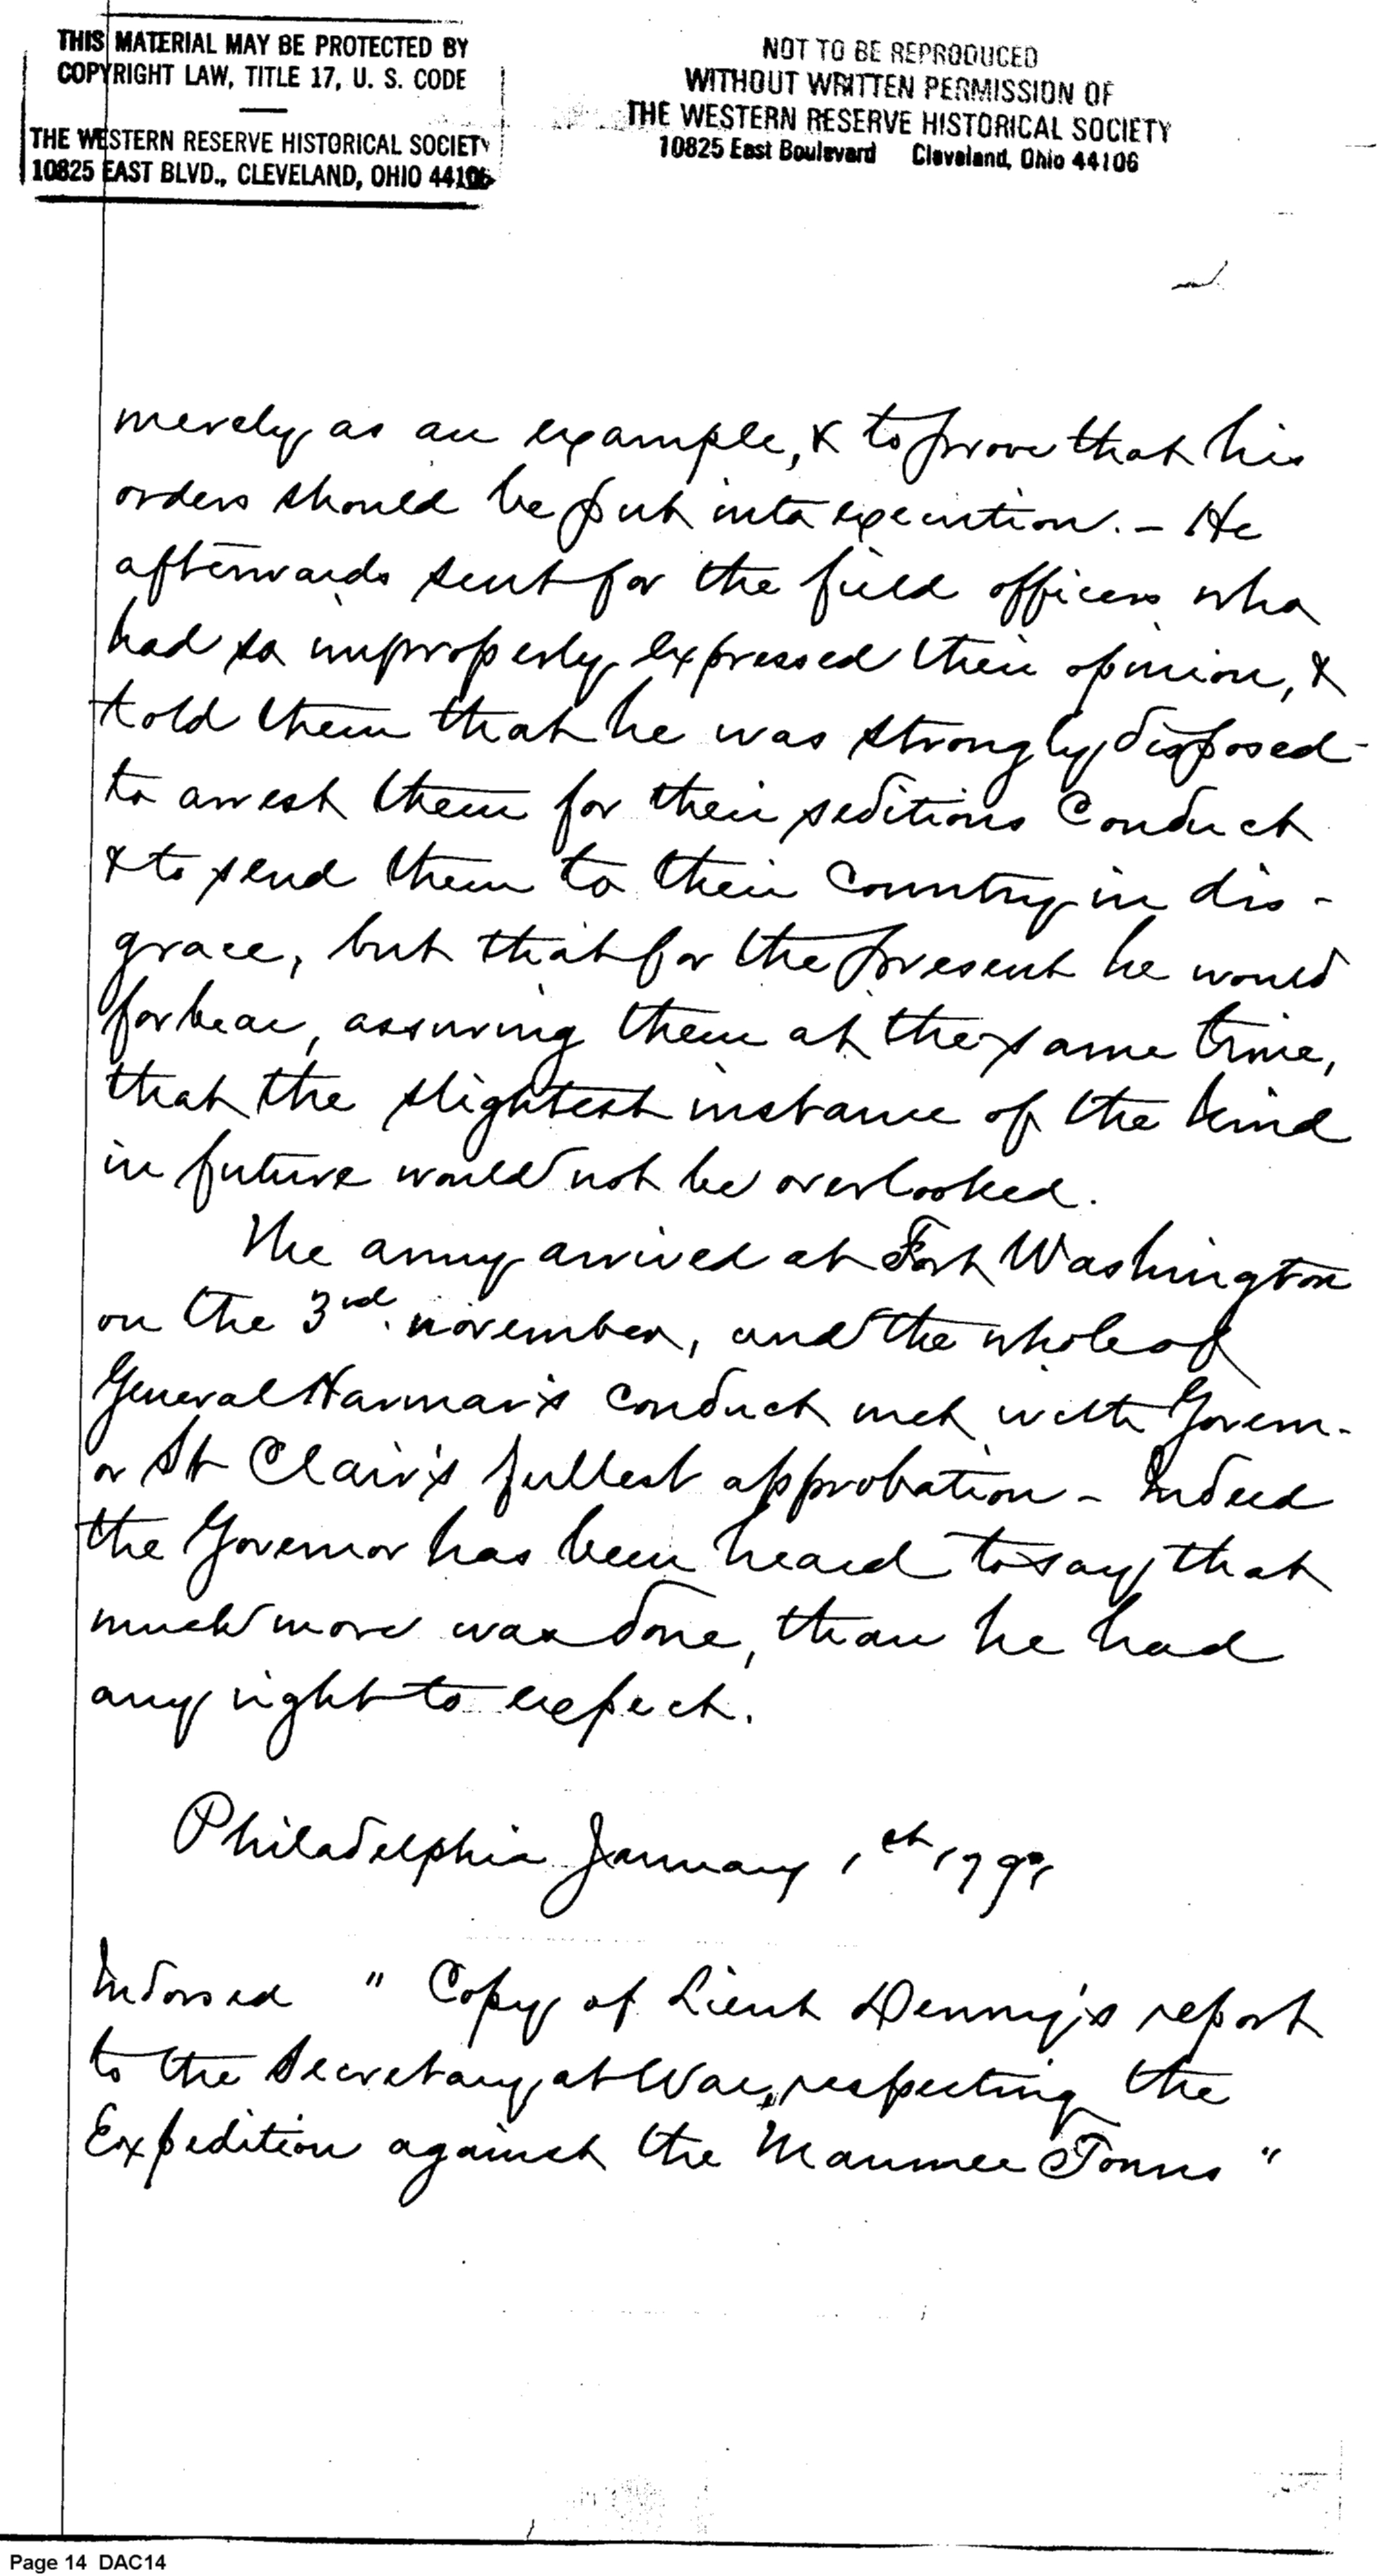 THIS MATERIAL MAY BE PROTECTED BY
COPYRIGHT LAW, TITLE 17, U. S. CODE
THE WESTERN RESERVE HISTORICAL SOCIETY
10825 EAST BLVD., CLEVELAND, OHIO 44106
NOT TO BE REPRODUCED
WITHOUT WRITTEN PERMISSION OF
THE WESTERN RESERVE HISTORICAL SOCIETY
10825 East Boulevard Cleveland, Ohio 44106
merely as an example, & to prove that his
orders should be put into execution. - He
afterwards sent for the field officers who
had so improperly expressed their opinion, &
told them that he was strongly disposed
to arrest them for their seditious Conduct
& to send them to their Country in dis-
grace, but that for the present he would
forbear, assuring them at the same time,
that the slightest instance of the kind
in future would not be overlooked.
The army arrived at Fort Washington
on the 3rd. november, and the whole of
General Harmar's Conduct met with Govern-
or St Clair's fullest approbation - Indeed
the Governor has been heard to say that
much more was done, than he had
any right to expect.
Philadelphia January 1st 1791
Indorsed " Copy of Lieut Denny's report
to the Secretary at War, respecting the
Expedition against the Maumee Towns "
Page 14 DAC14